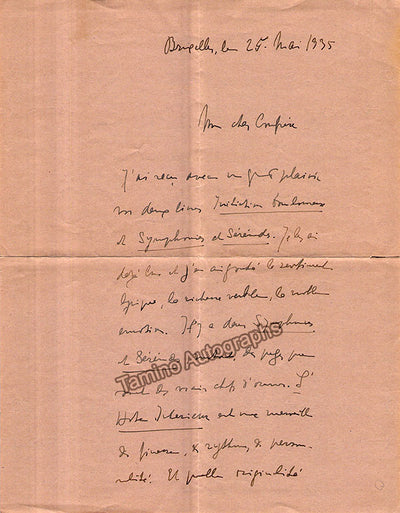 Bruxelles, le 25 Mai 1935
Mon cher Confrère
J'ai reçu avec un grand plaisir
vos deux livres Initiation
et Symphonies et Sérénades. Je les ai
déjà lus et j'en ai goûté le sentiment
lyrique, la richesse verbale, la noble
émotion. Il y a dans Symphonies
et Sérénades des pages que
sont des vrais chefs d'œuvre. L'
Hôte Intérieur est une merveille
de finesse, de rythme, de person-
nalité. Et quelle originalité
Tamino Autographs